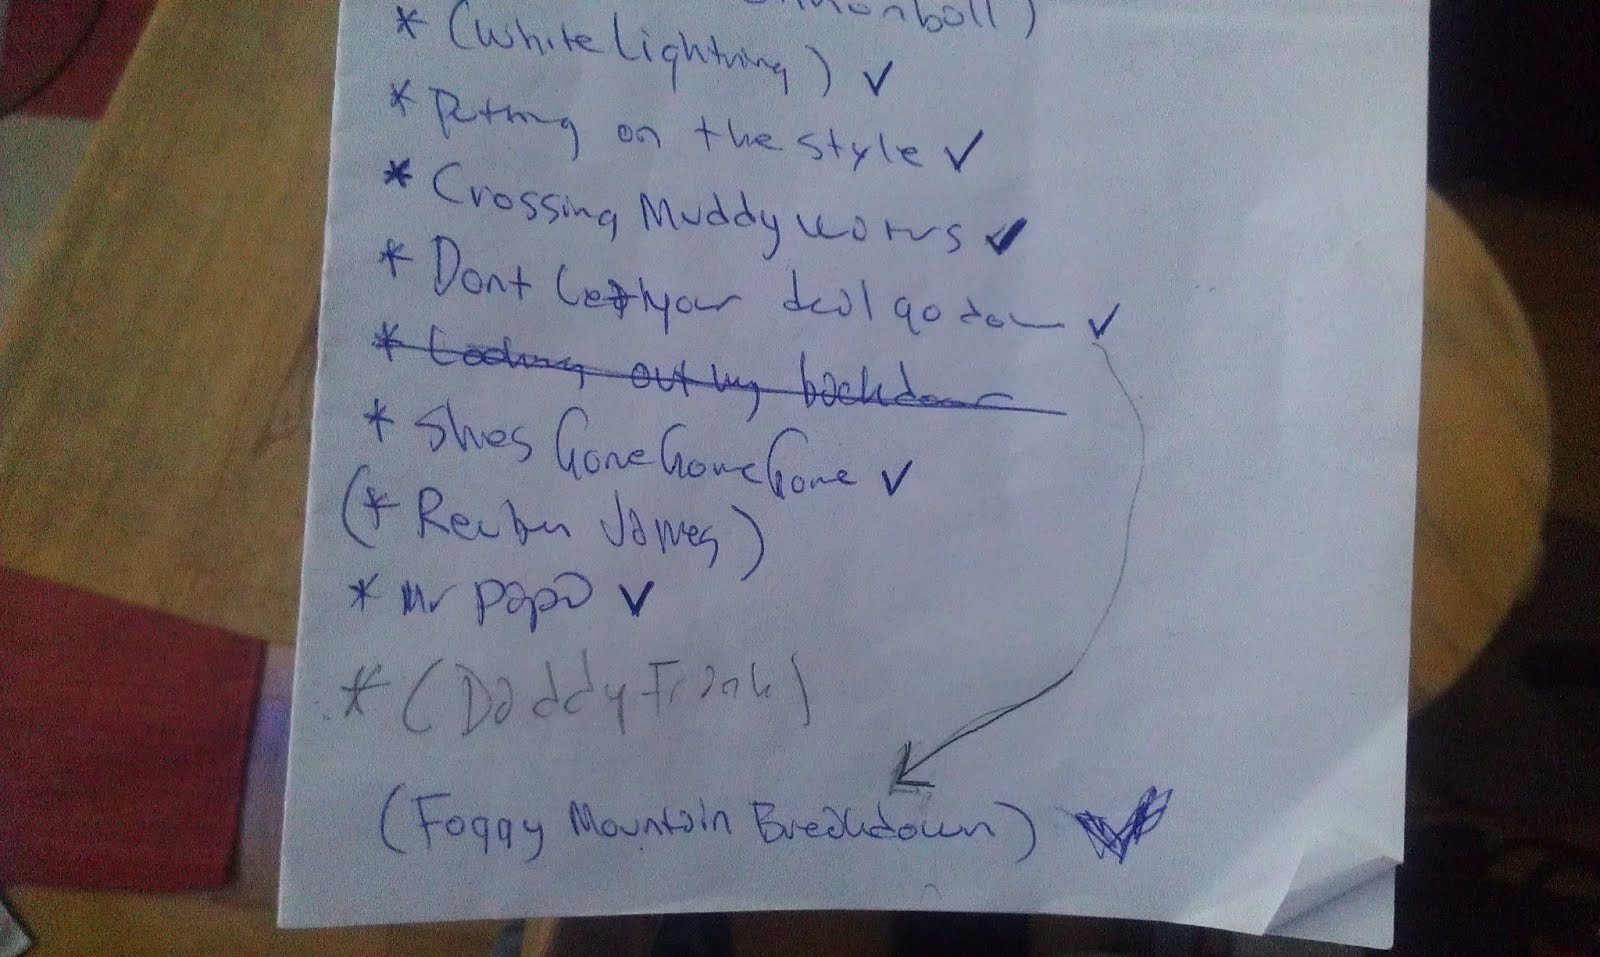 onball)
* (White Lightning) ✓
* Putting on the style ✓
* Crossing Muddy waters ✓
* Dont let your deal go down ✓
* Looking out my backdoor
* Shes Gone Gone Gone ✓
(* Reuben James)
* Mr papa ✓
* (Daddy Frank)
(Foggy Mountain Breakdown) ✓